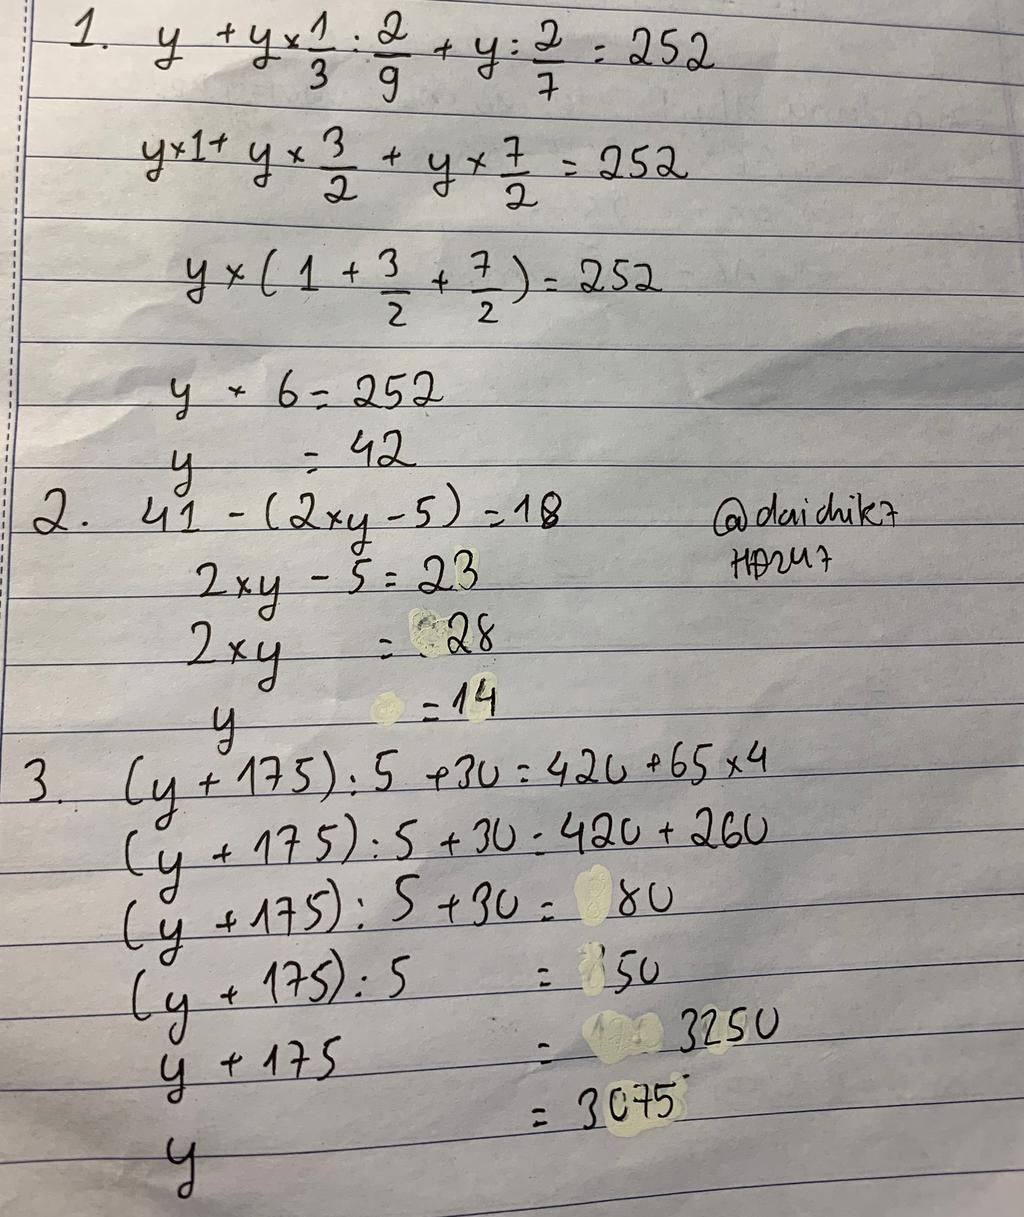 1. y + y × 1/3 : 2/9 + y : 2/7 = 252
y × 1 + y × 3/2 + y × 7/2 = 252
y × ( 1 + 3/2 + 7/2 ) = 252
y × 6 = 252
y = 42
2. 41 - (2 × y - 5) = 18
@daichik7
HD247
2 × y - 5 = 23
2 × y = 28
y = 14
3. (y + 175) : 5 + 30 = 420 + 65 × 4
(y + 175) : 5 + 30 = 420 + 260
(y + 175) : 5 + 30 = 80
(y + 175) : 5 = 50
y + 175 = 3250
y = 3075